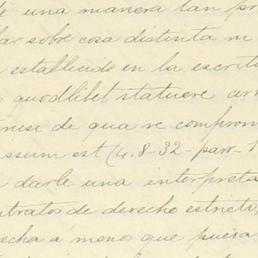 de una manera tan pr
lar sobre cosa distinta ni
establecido en la escrit
quodlibet statuere ar
nesi de qua re comprom
ssum est (4. 8-32-parr. 1
darle una interpreta
ntratos de derecho estricto,
echa á menos que pueda